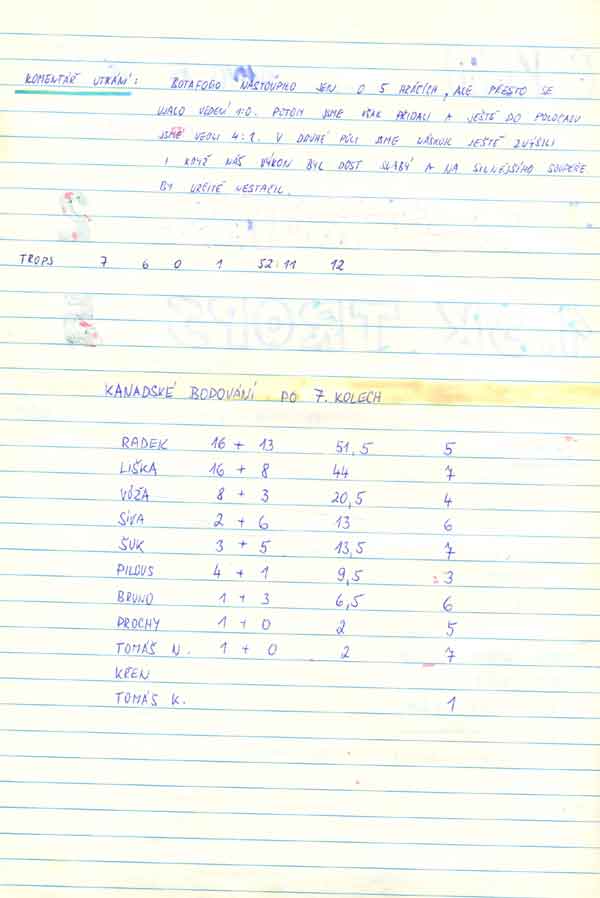 KOMENTÁŘ UTKÁNÍ: BOTAFOGO NASTOUPILO JEN O 5 HRÁČÍCH, ALE PŘESTO SE
UJALO VEDENÍ 1:0. POTOM JSME VŠAK PŘIDALI A JEŠTĚ DO POLOČASU
JSME VEDLI 4:1. V DRUHÉ PŮLI JSME NÁSKOK JEŠTĚ ZVÝŠILI
I KDYŽ NÁŠ VÝKON BYL DOST SLABÝ A NA SILNĚJŠÍHO SOUPEŘE
BY URČITĚ NESTAČIL.
TROPS 7 6 0 1 52:11 12
KANADSKÉ BODOVÁNÍ PO 7. KOLECH
RADEK 16 + 13 51,5 5
LIŠKA 16 + 8 44 7
VÓŽA 8 + 3 20,5 4
SÍVA 2 + 6 13 6
ŠUK 3 + 5 13,5 7
PILOUS 4 + 1 9,5 3
BRUNO 1 + 3 6,5 6
PROCHY 1 + 0 2 5
TOMÁŠ N. 1 + 0 2 7
KŘEN
TOMÁŠ K. 1